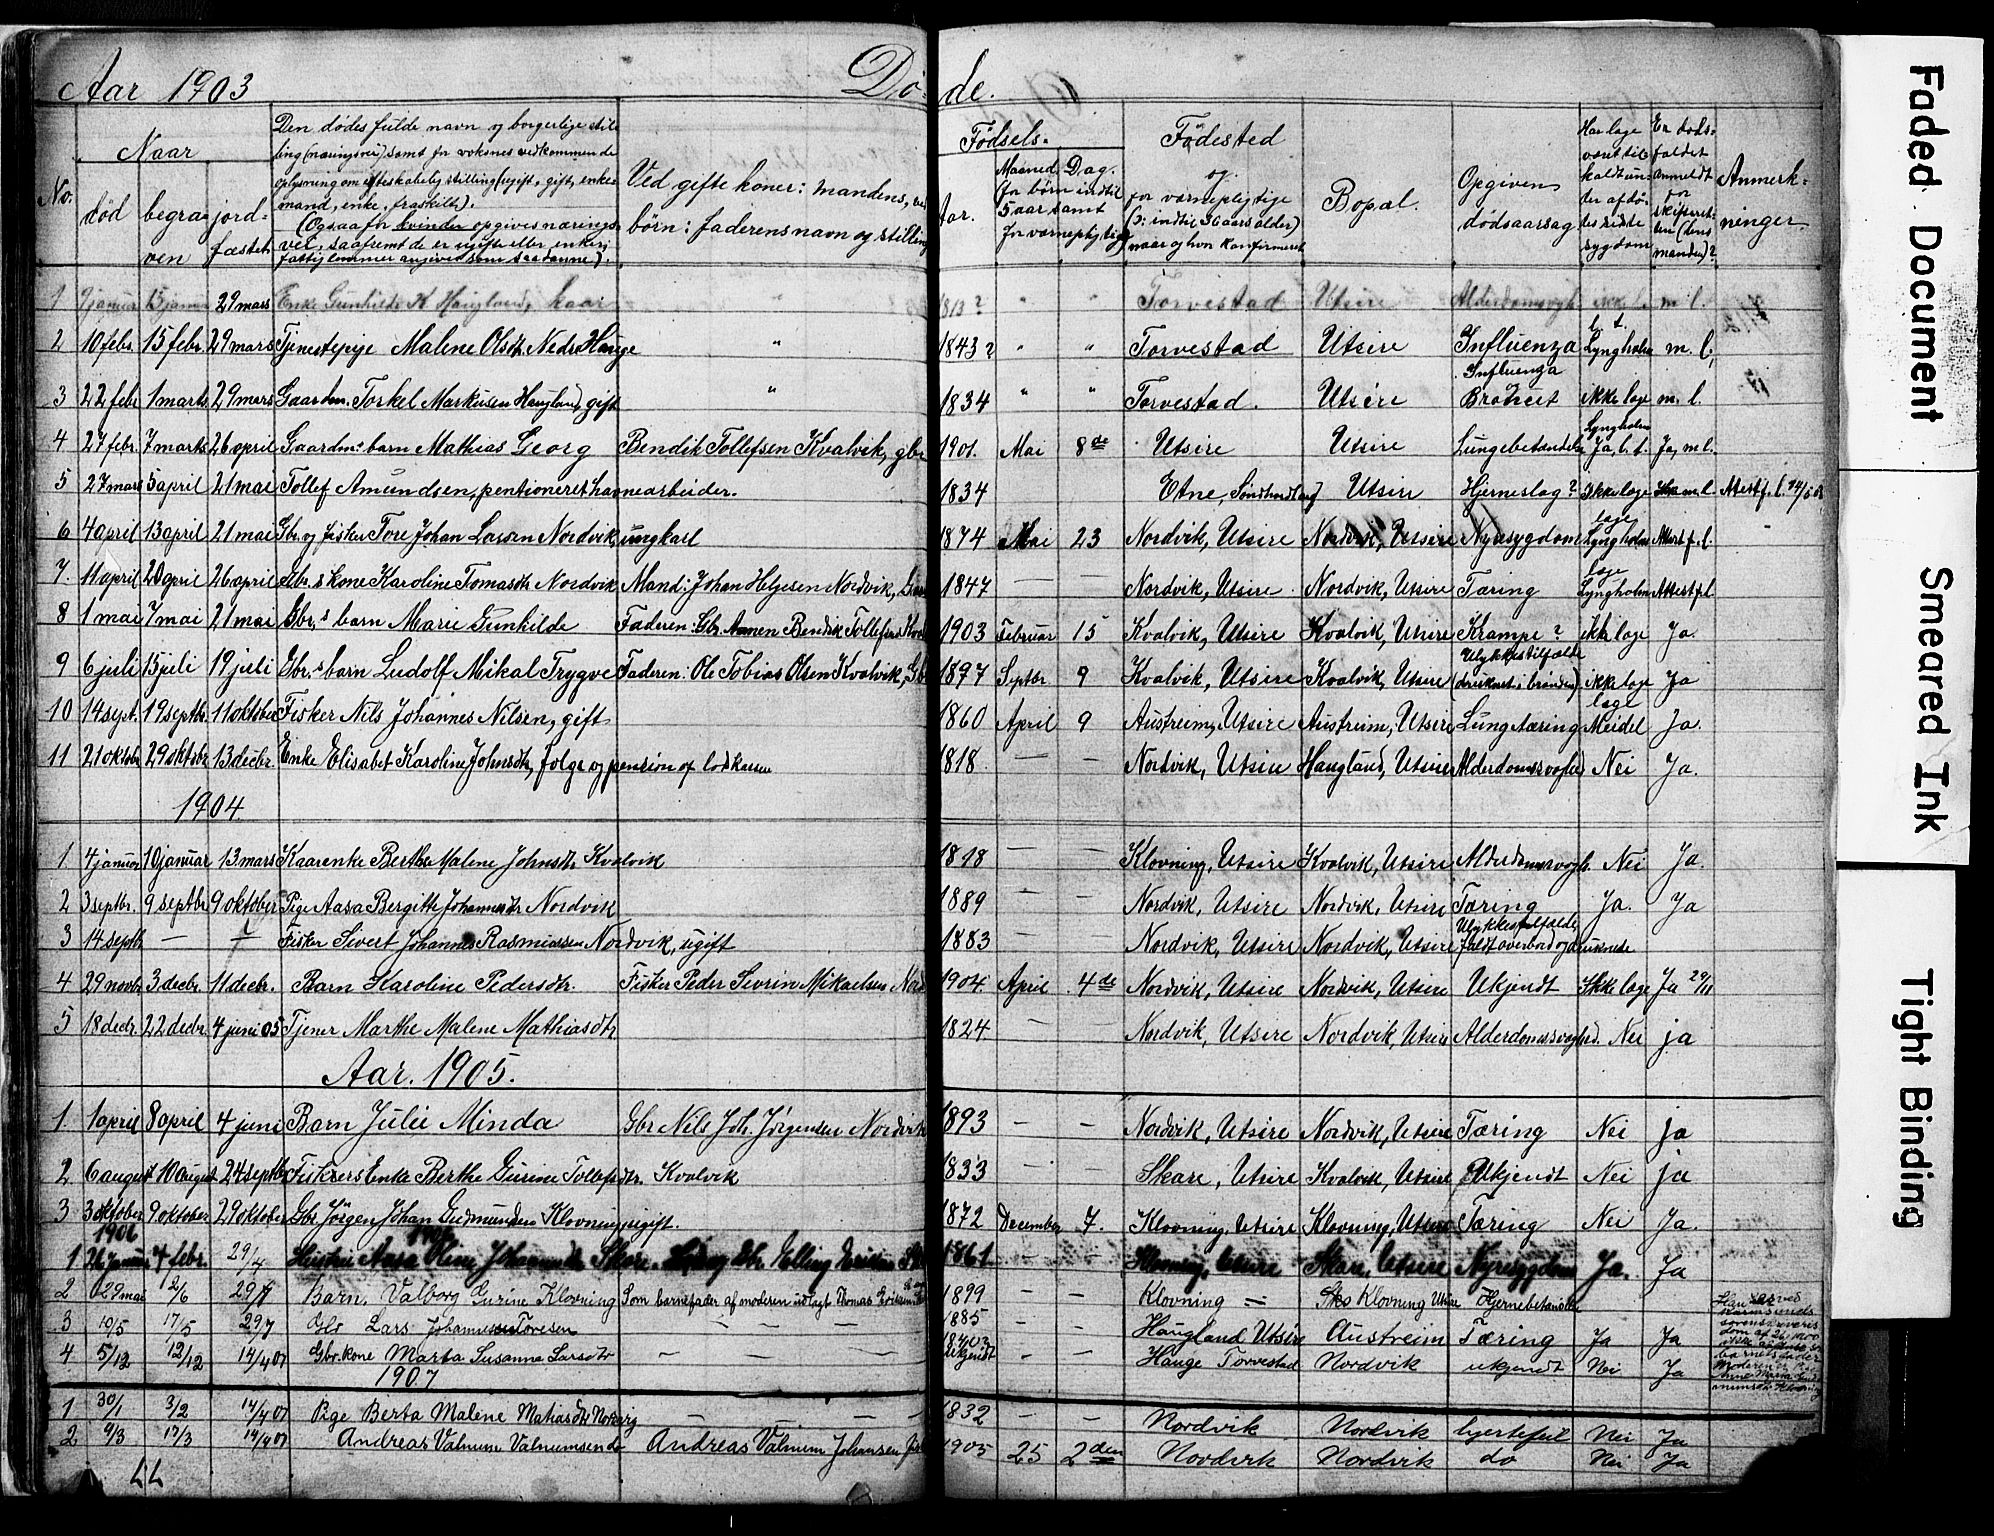 Aar 1903
Døde.
No.
Naar
død
begraven
jordfæstet
Den dødes fulde navn og borgerlige stilling (næringsvei) samt for voksnes vedkommende
oplysning om ægteskabelig stilling (ugift, gift, enkemand, enke, fraskilt).
(Ogsaa for kvinder opgives næringsvei, saafremt de er ugifte eller enker;
fattiglemmer angives som saadanne).
Ved gifte koner: mandens, ved
børn: faderens navn og stilling
Fødsels-
Aar.
Maaned Dag.
(for børn indtil
5 aar samt
for værnepligtige)
Fødested
og
for værnepligtige
naar og hvor konfirmeret
Bopæl.
Opgiven
dødsaarsag
Har læge været tilkaldt under afdødes sidste sygdom
Er dødsfaldet anmeldt for skifteretten (lensmanden)?
Anmerkninger.
1 9 januar 15 januar 29 mars Enke Gunhilde K Haugland, kaar " 1813? " " Torvestad Utsire Alderdomssvagh. m l.
2 10 febr. 15 febr. 29 mars Tjenestepige Malene Olsdtr. Nedre Hauge " 1843? " " Torvestad Utsire Influenza Lyngholm m. l.
3 22 febr. 1 marts. 29 mars Gaardm. Torkel Markusen Haugland, gift " 1834 " " Torvestad. Utsire Influenza Broncit ikke læge m. l.
4 27 febr. 7 marts 26 april Gaardm.s barn Mathias Georg Bendik Tollefsen Kvalvik, gbr 1901. Mai 8de Utsire Utsire Lungebetændelse Lyngholm Ja, Ja, m l.
5 27 mars 5 april 21 mai Tollef Amundsen, pentioneret havnearbeider. 1834 Etne, Søndhordland Utsire Hjerneslag? Ikke læge m l. Attest f. l. 14/5 03
6 4 april 13 april 21 mai Gbr. og fisker Tore Johan Larsen Nordvik, ungkarl 1874 Mai 23 Nordvik, Utsire Nordvik, Utsire Nyresygdom læge Lyngholm Attest f. l.
7. 11 april 20 april 26 april Gbr.s kone Karoline Tomasdtr Nordvik Mand: Johan Helgesen Nordvik, 1847 — — Nordvik, Utsire. Nordvik, Utsire Tæring læge Lyngholm Attest f. l
8 1 mai 7 mai 21 mai Gbr.s barn Marie Gunhilde Faderen: Gbr. Bendik Tollefsen 1903 Februar 15 Kvalvik, Utsire Kvalvik, Utsire Krampe? ikke læge Ja.
9 6 juli 15 juli 19 juli Gbr.s barn Ludolf Mikal Trygve Faderen: Ole Tobias Olsen Kvalvik, 1897 Septbr 9 Kvalvik, Utsire Kvalvik, Utsire Ulykkestilfælde (druknet i brønden) ikke læge Ja
10 14 sept. 19 septbr. 11 oktober Fisker Nils Johannes Nilsen, gift 1860 April 9 Austreim, Utsire Austreim, Utsire Lungetæring læge Meidel Ja.
11 21 oktbr. 29 oktbr. 13 decbr. Enke Elisabet Karoline Johnsdtr, følge og pension af lodskassen 1818. — — Nordvik, Utsire Haugland, Utsire Alderdomssvaghed Nei Ja.
1904.
1 4 januar 10 januar. 13 mars Kaarenke Berthe Malene Johnsdtr. Kvalvik 1818 — — Klovning, Utsire Kvalvik, Utsire Alderdomssvagh. Nei Ja.
2 3 septbr. 9 septbr 9 oktober Pige Aasa Bergitte Johannesdtr Nordvik 1889 — — Nordvik, Utsire Nordvik, Utsire Tæring Ja. Ja
3 14 septb — Fisker Sivert Johannes Rasmussen Nordvik, ugift 1883 — — Nordvik, Utsire Nordvik, Utsire Ulykkestilfælde, faldt overbord og druknede
4 29 novbr. 3 decbr. 11 decbr. Barn Karoline Pedersdtr. Fisker Peder Sevrin Mikaelsen 1904. April 4de Nordvik, Utsire Nordvik, Utsire Ukjendt Ikke læge Ja 29/11
5 18 decbr. 22 decbr. 4 juni 05 Tjener Marthe Malene Mathiasdtr 1824. — — Nordvik, Utsire Nordvik, Utsire Alderdomssvaghed. Nei ja
Aar. 1905.
1. 1 april 8 april 4 juni Barn Julie Minda Gbr Nils Joh. Jørgensen Nordvik 1893 — — Nordvik, Utsire Nordvik, Utsire Tæring Nei ja
2 6 august 10 august 24 septbr Fiskers Enke Berthe Gurine Tollefsdtr. Kvalvik 1833 — — Skare, Utsire Kvalvik, Utsire Ukjendt Nei ja
3 3 oktober 9 oktober 29 oktober Gbr. Jørgen Johan Gudmundsen Klovning, ugift. 1872 December 7. Klovning, Utsire Klovning, Utsire Tæring Nei Ja.
1906
1 26 januar 4 febr. 29/4 Hustru Aasa Oline Johannesdtr Skare Elling 1861 — — Klovning, Utsire Skare, Utsire Nyresygdom Ja. Ja
2 29 mai 2/6 29/7 Barn, Valborg Gurine Klovning Som barnefader af moderen udlagt Thomas 1899 — — Klovning Klovning Utsire Hjernebetændelse
3 10/5 17/5 29/7 Lars Johannessen Toresen — — — 1885 — — Haugland Utsire Austreim Tæring Ja Ja
4 5/12 12/12 14/4 07 Gbr. kone Marta Susanna Larsdtr — — — — ukjendt — — Hauge Torvestad Nordvik ukjendt Nei Ja
1907
1 30/1 3/2 14/4 07 Pige Berta Malene Matiasdtr — — — — 1832 — — Nordvik Nordvik hjertefeil Nei Ja
2 9/3 17/3 14/4 07 Andreas Valnum Valnumsen do Andreas Valnum Johansen 1905 25 2den Nordvik Nordvik do Nei Ja
Faded Document
Smeared Ink
Tight Binding